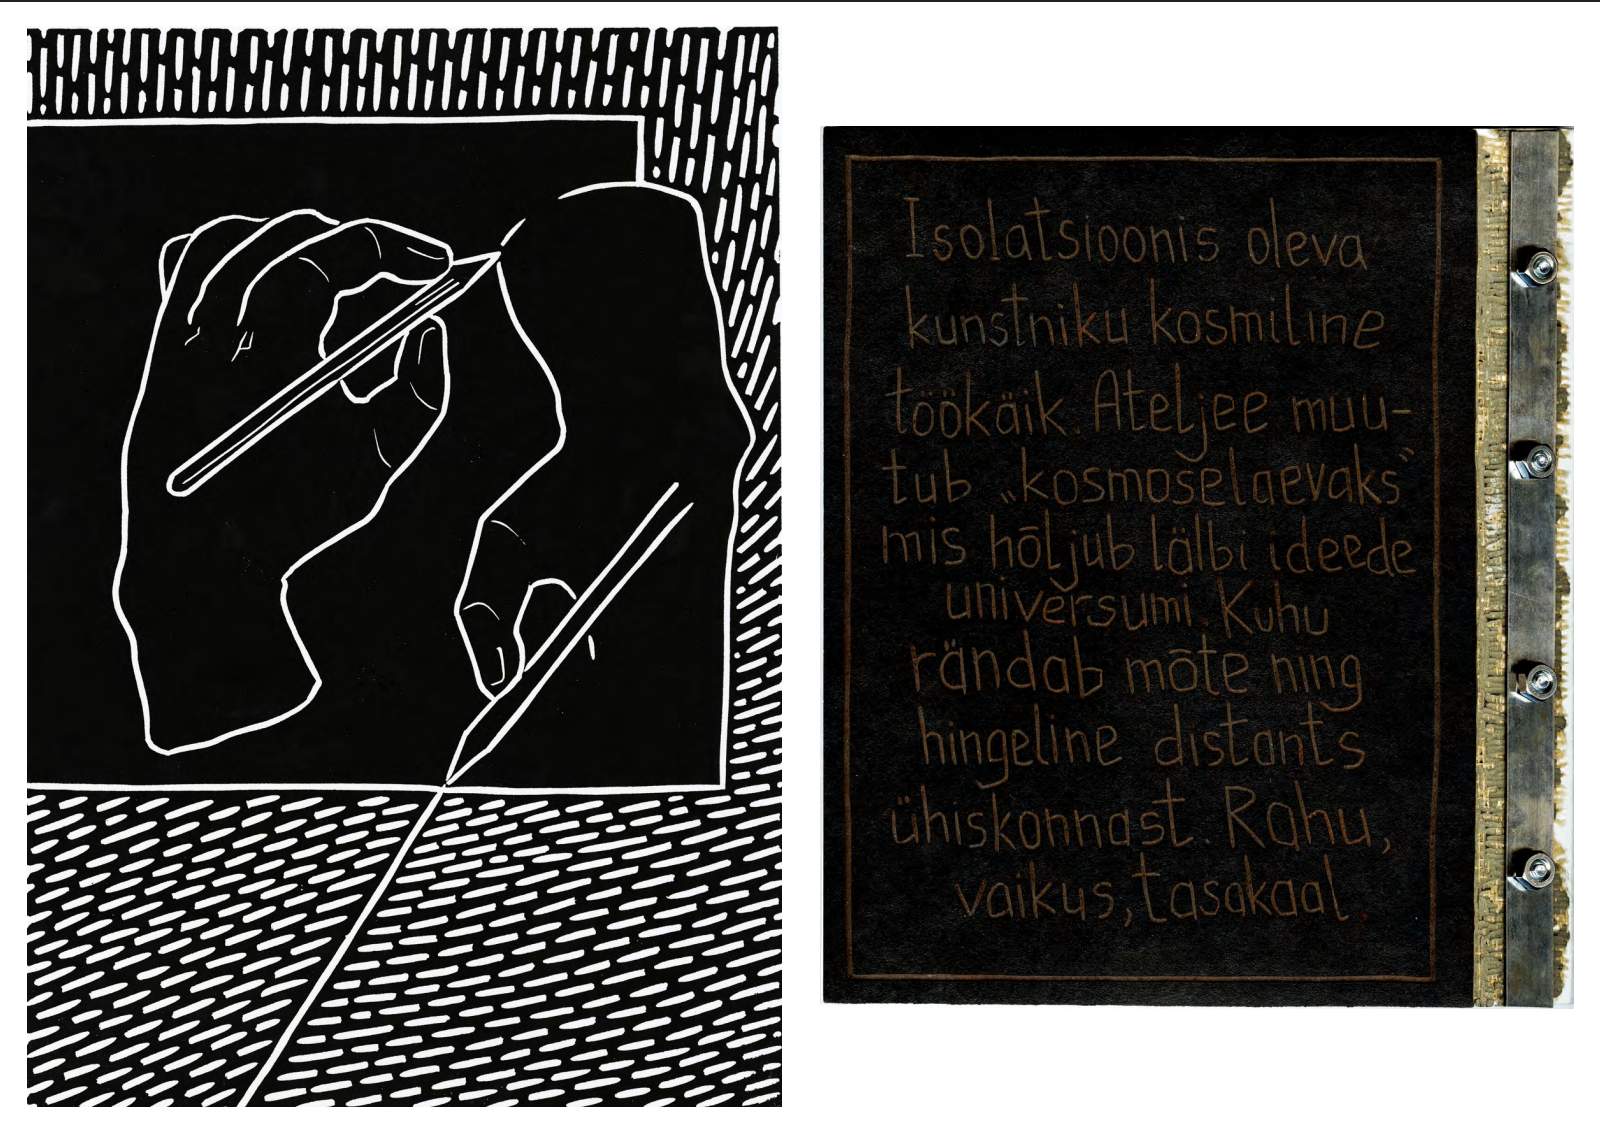 Isolatsioonis oleva
kunstniku kosmiline
töökäik. Ateljee muu-
tub „kosmoselaevaks”
mis hõljub läbi ideede
universumi. Kuhu
rändab mõte ning
hingeline distants
ühiskonnast. Rahu,
vaikus, tasakaal.